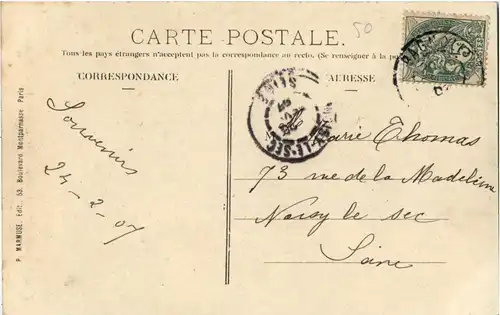 50
CARTE POSTALE.
Tous les pays étrangers n'acceptent pas la correspondance au recto. (Se renseigner à la
CORRESPONDANCE
ADRESSE
Souvenirs
24-2-07
Marie Thomas
73 rue de la Madeleine
Noisy le sec
Seine
LE-SEC
SEINE
P. MARMUSE. Edit., 53, Boulevard Montparnasse Paris